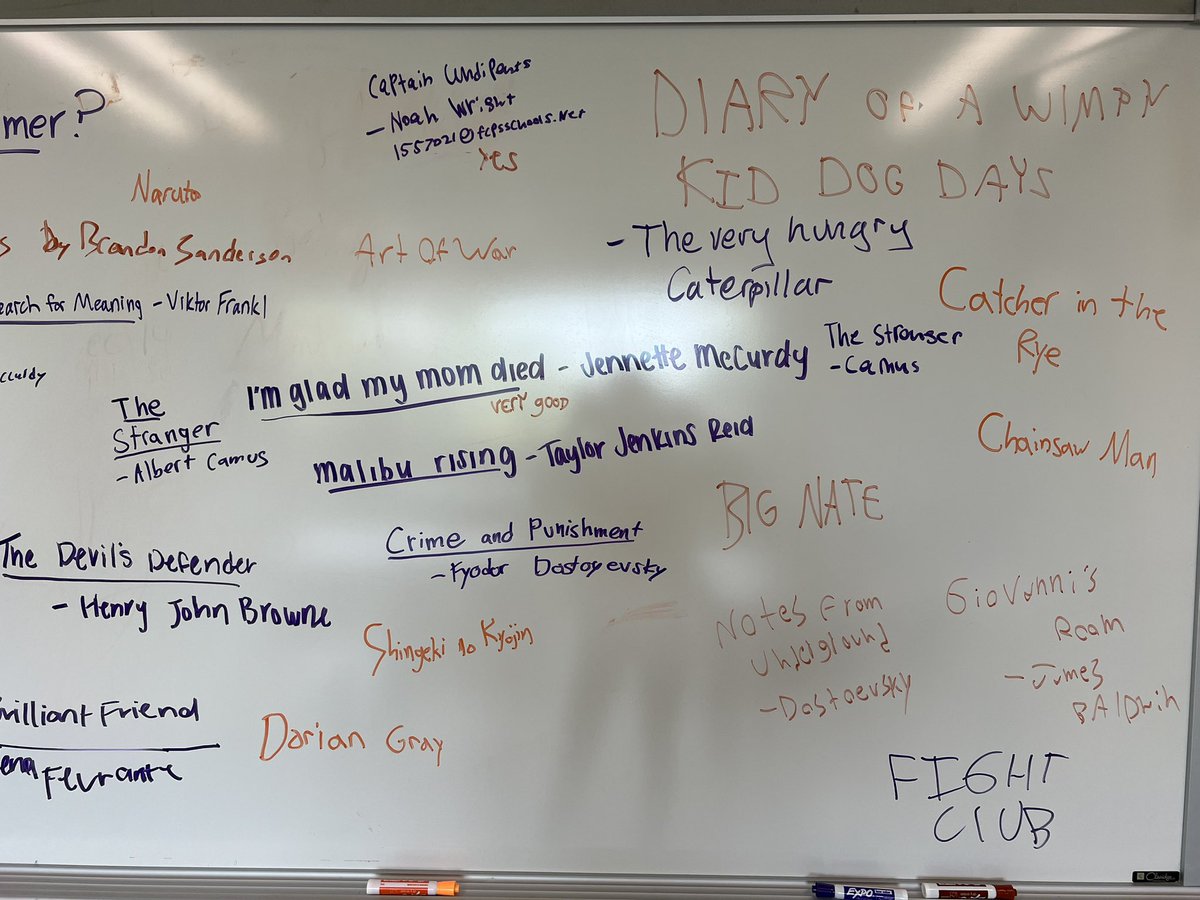 mer?
Captain Undipants
- Noah Wright
1557021@fcpsschools.net
Yes
DIARY OF A WIMPY
KID DOG DAYS
Naruto
s by Brandon Sanderson
Art Of War
- The very hungry
Caterpillar
earch for Meaning - Viktor Frankl
Catcher in the
Rye
The Stranger
- Camus
I'm glad my mom died - Jennette McCurdy
very good
The
Stranger
- Albert Camus
malibu rising - Taylor Jenkins Reid
Chainsaw Man
BIG NATE
Crime and Punishment
- Fyodor Dostoyevsky
The Devil's Defender
- Henry John Browne
Shingeki no Kyojin
Notes From
- Dostoevsky
Giovanni's
Room
- James
BAldwin
rilliant Friend
ena Ferrante
Dorian Gray
FIGHT
CLUB
EXPO